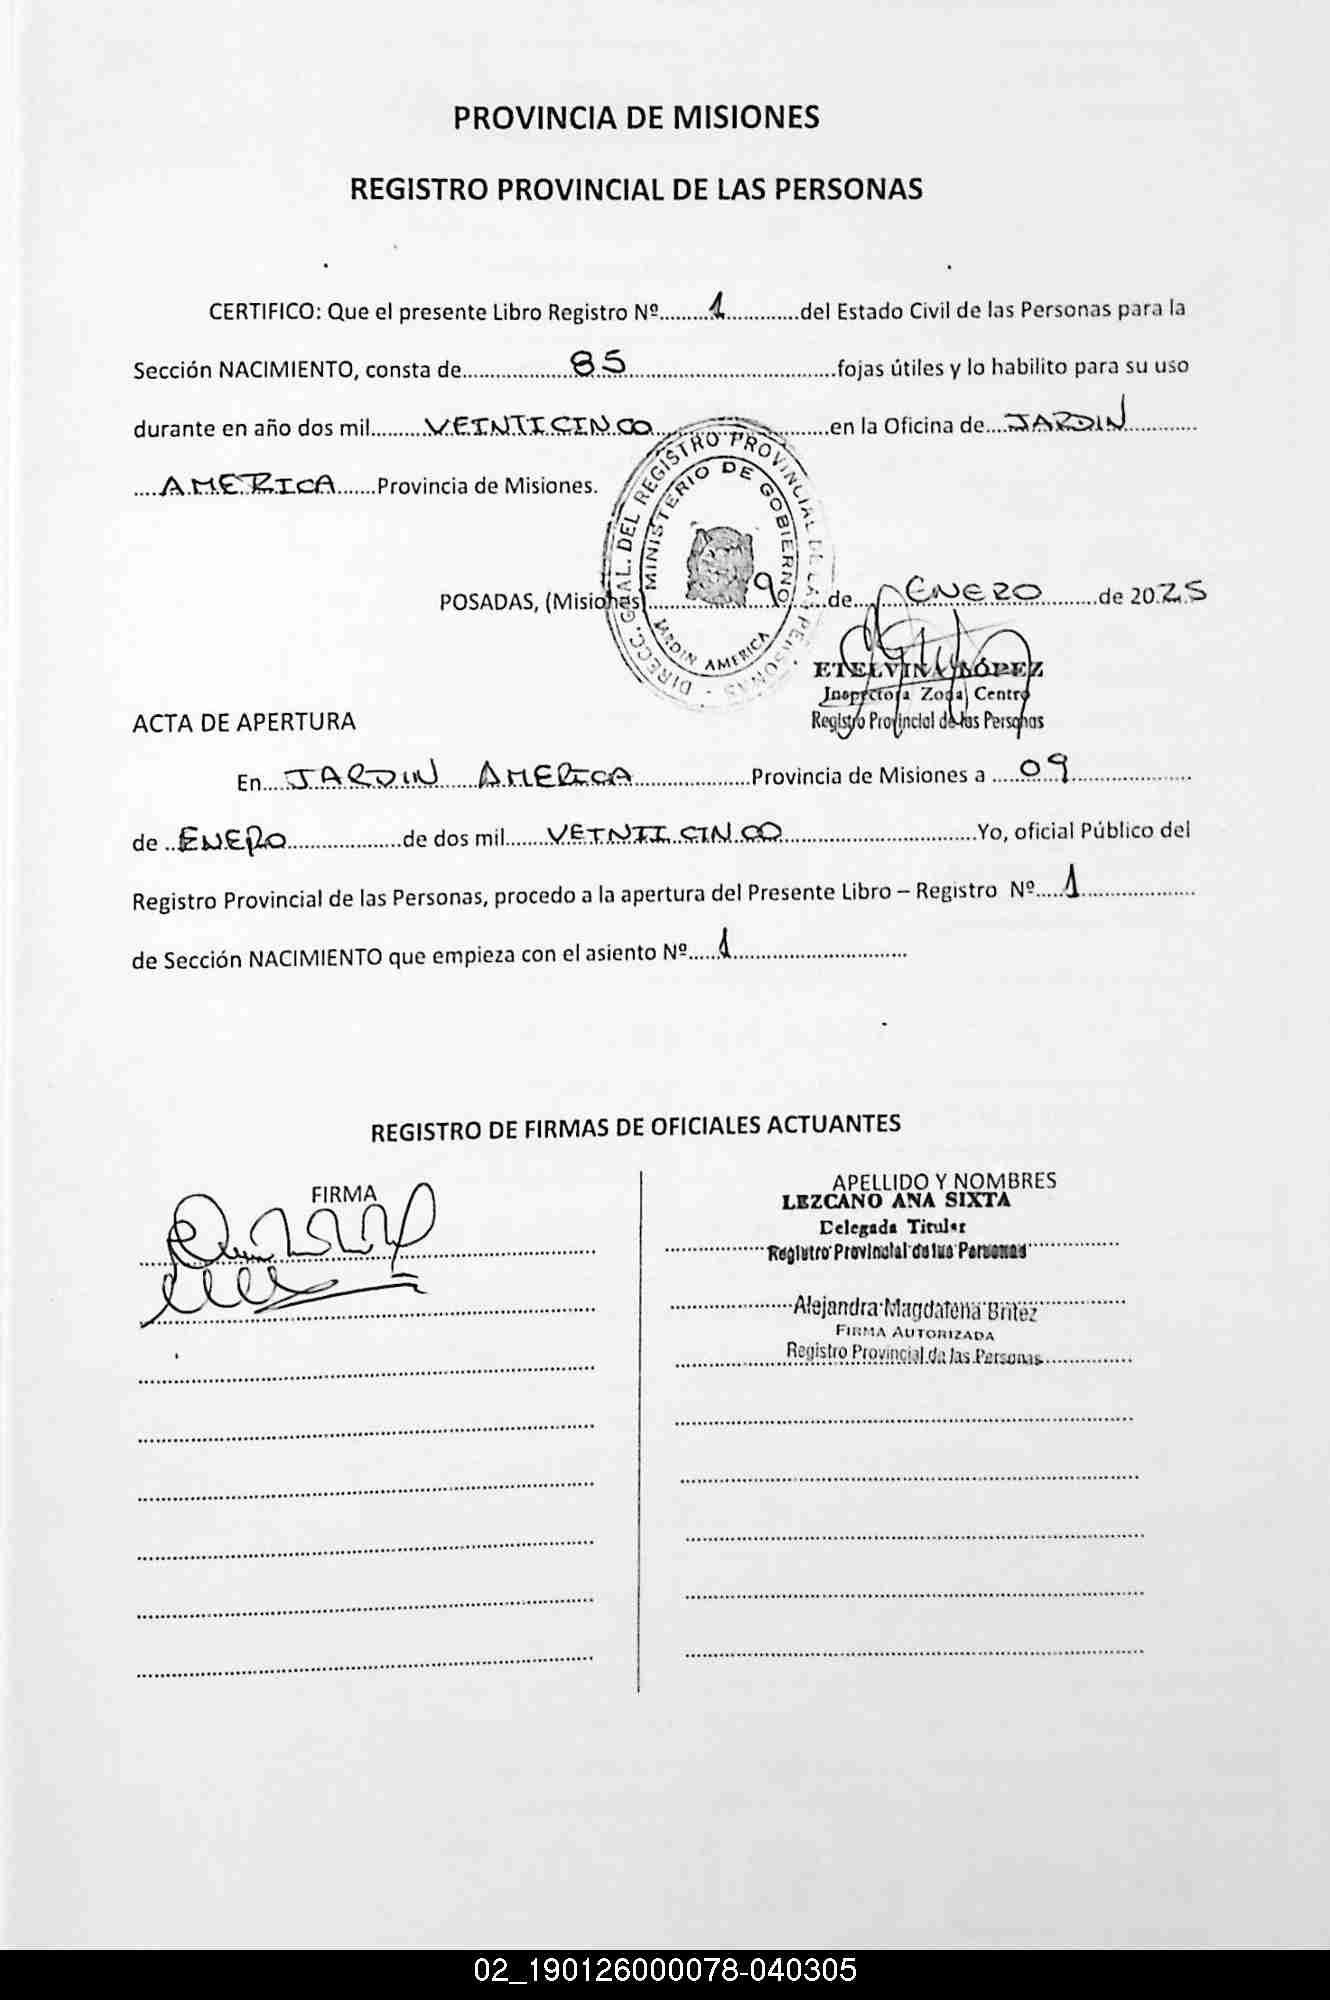 PROVINCIA DE MISIONES
REGISTRO PROVINCIAL DE LAS PERSONAS
CERTIFICO: Que el presente Libro Registro Nº.........1.............del Estado Civil de las Personas para la
Sección NACIMIENTO, consta de....................85....................................fojas útiles y lo habilito para su uso
durante en año dos mil.........VEINTICINCO..........................en la Oficina de....JARDIN............
....AMERICA.......Provincia de Misiones.
DIRECC. GRAL. DEL REGISTRO PROVINCIAL DE LAS PERSONAS
MINISTERIO DE GOBIERNO
JARDIN AMERICA
POSADAS, (Misiones)....................9.......de....ENERO.........de 2025
ETELVINA LÓPEZ
Inspectora Zona Centro
Registro Provincial de las Personas
ACTA DE APERTURA
En....JARDIN AMERICA....................Provincia de Misiones a .....09....................
de ..ENERO....................de dos mil.......VEINTICINCO..................................Yo, oficial Público del
Registro Provincial de las Personas, procedo a la apertura del Presente Libro – Registro Nº.....1....................
de Sección NACIMIENTO que empieza con el asiento Nº.....1..............................
REGISTRO DE FIRMAS DE OFICIALES ACTUANTES
FIRMA
APELLIDO Y NOMBRES
LEZCANO ANA SIXTA
Delegada Titular
Registro Provincial de las Personas
Alejandra Magdalena Britez
FIRMA AUTORIZADA
Registro Provincial de las Personas
02_190126000078-040305